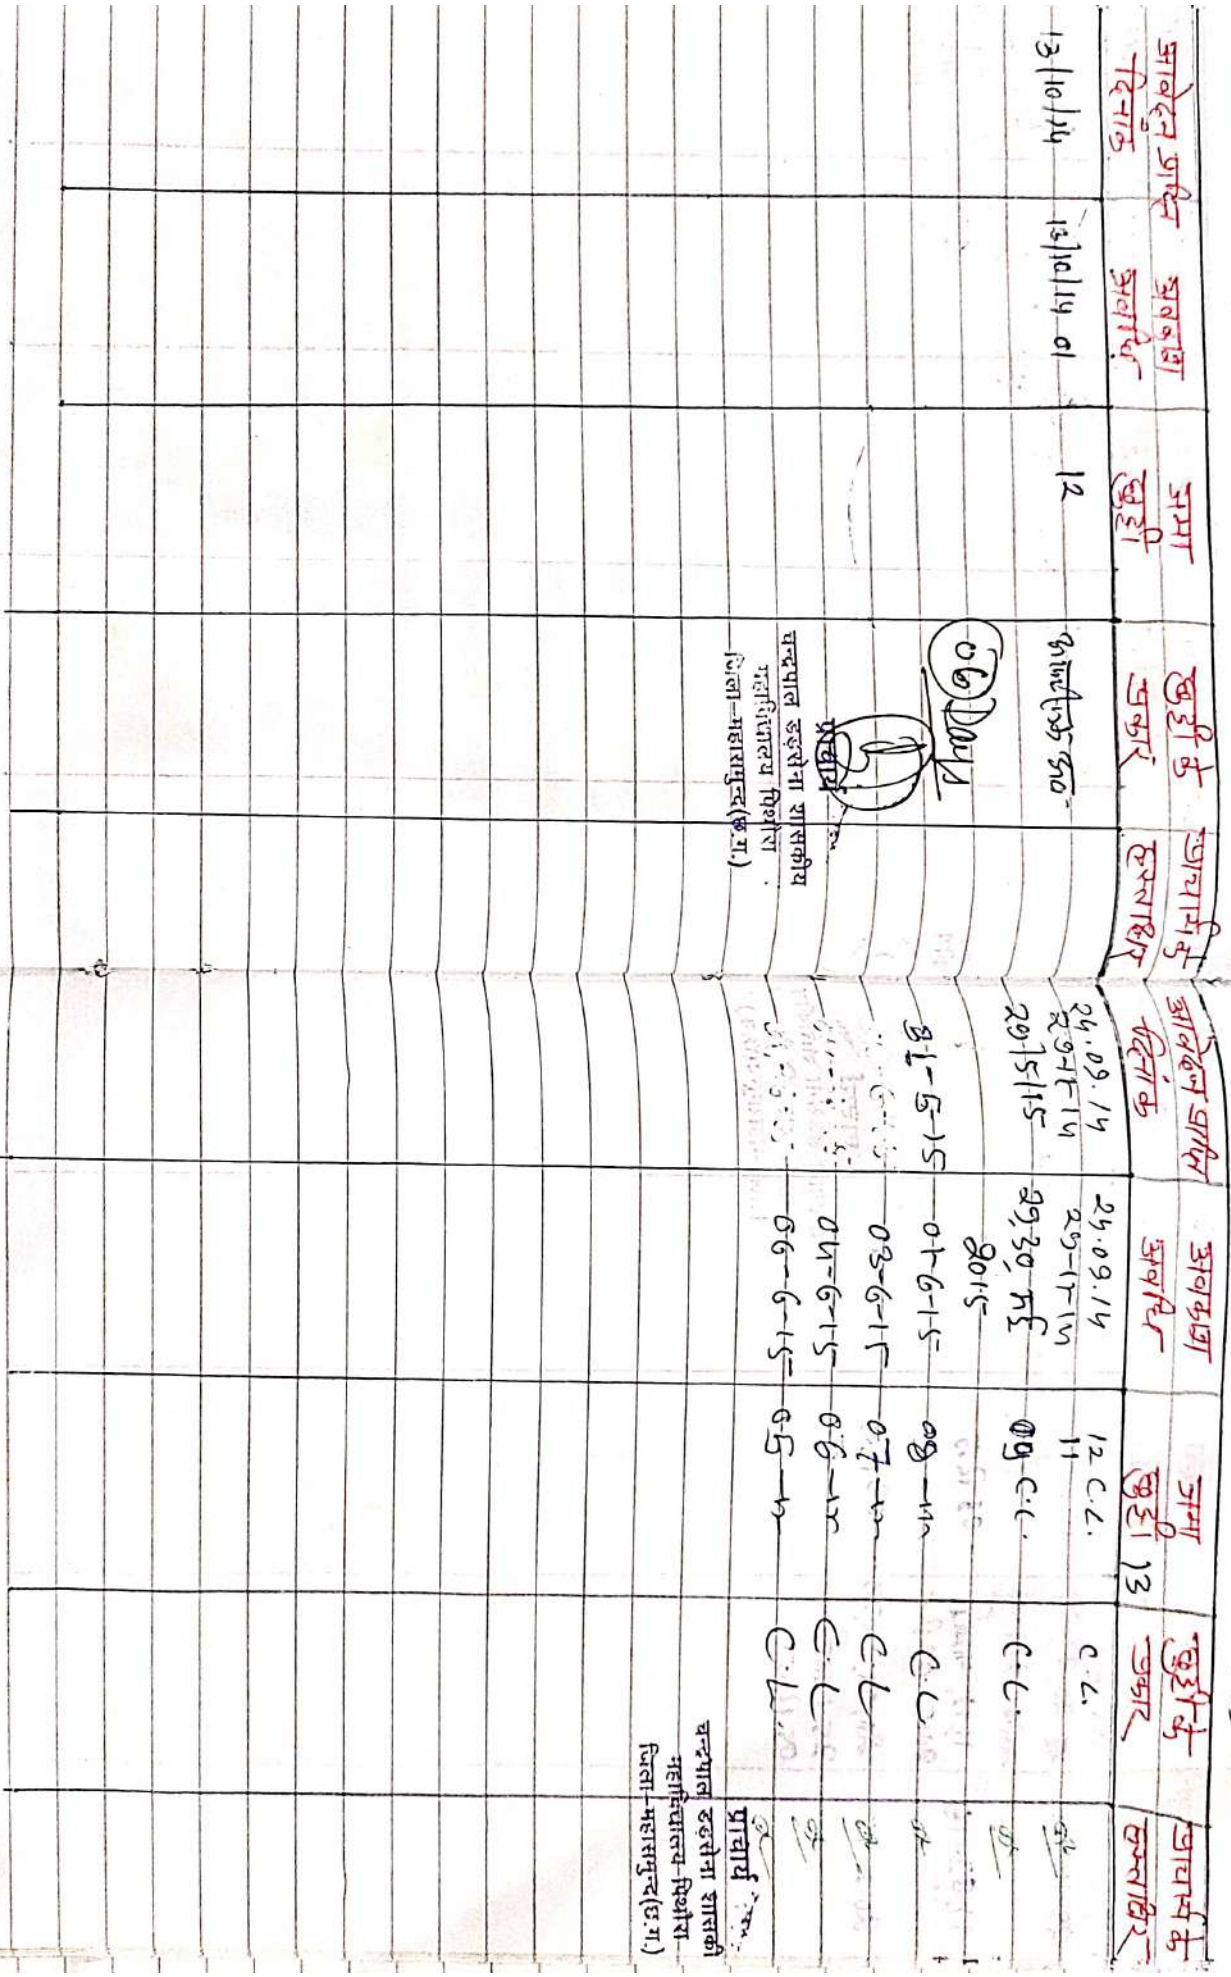 आवेदन प्राप्ति दिनांक | अवकाश अवधि | जमा छुट्टी | छुट्टी के प्रकार | प्राचार्य के हस्ताक्षर
13/10/14 | 13/10/14 01 | 12
06 Days
प्राचार्य
चन्द्रपाल डड़सेना शासकीय
महाविद्यालय पिथौरा
जिला-महासमुन्द (छ.ग.)
आवेदन प्राप्ति दिनांक | अवकाश अवधि | जमा छुट्टी 13 | छुट्टी के प्रकार | प्राचार्य के हस्ताक्षर
24.09.14 | 24.09.14 | 12 C.L. | C.L.
11
29/5/15 | 29,30 मई 2015 | 09 C.L. | C.L.
31-5-15 | 01-6-15 | 08 -"- | C.L.
03-6-15 | 07 -"- | C.L.
04-6-15 | 06 -"- | C.L.
06-6-15 | 05 -"- | C.L.
प्राचार्य
चन्द्रपाल डड़सेना शासकी
महाविद्यालय पिथौरा
जिला-महासमुन्द (छ.ग.)